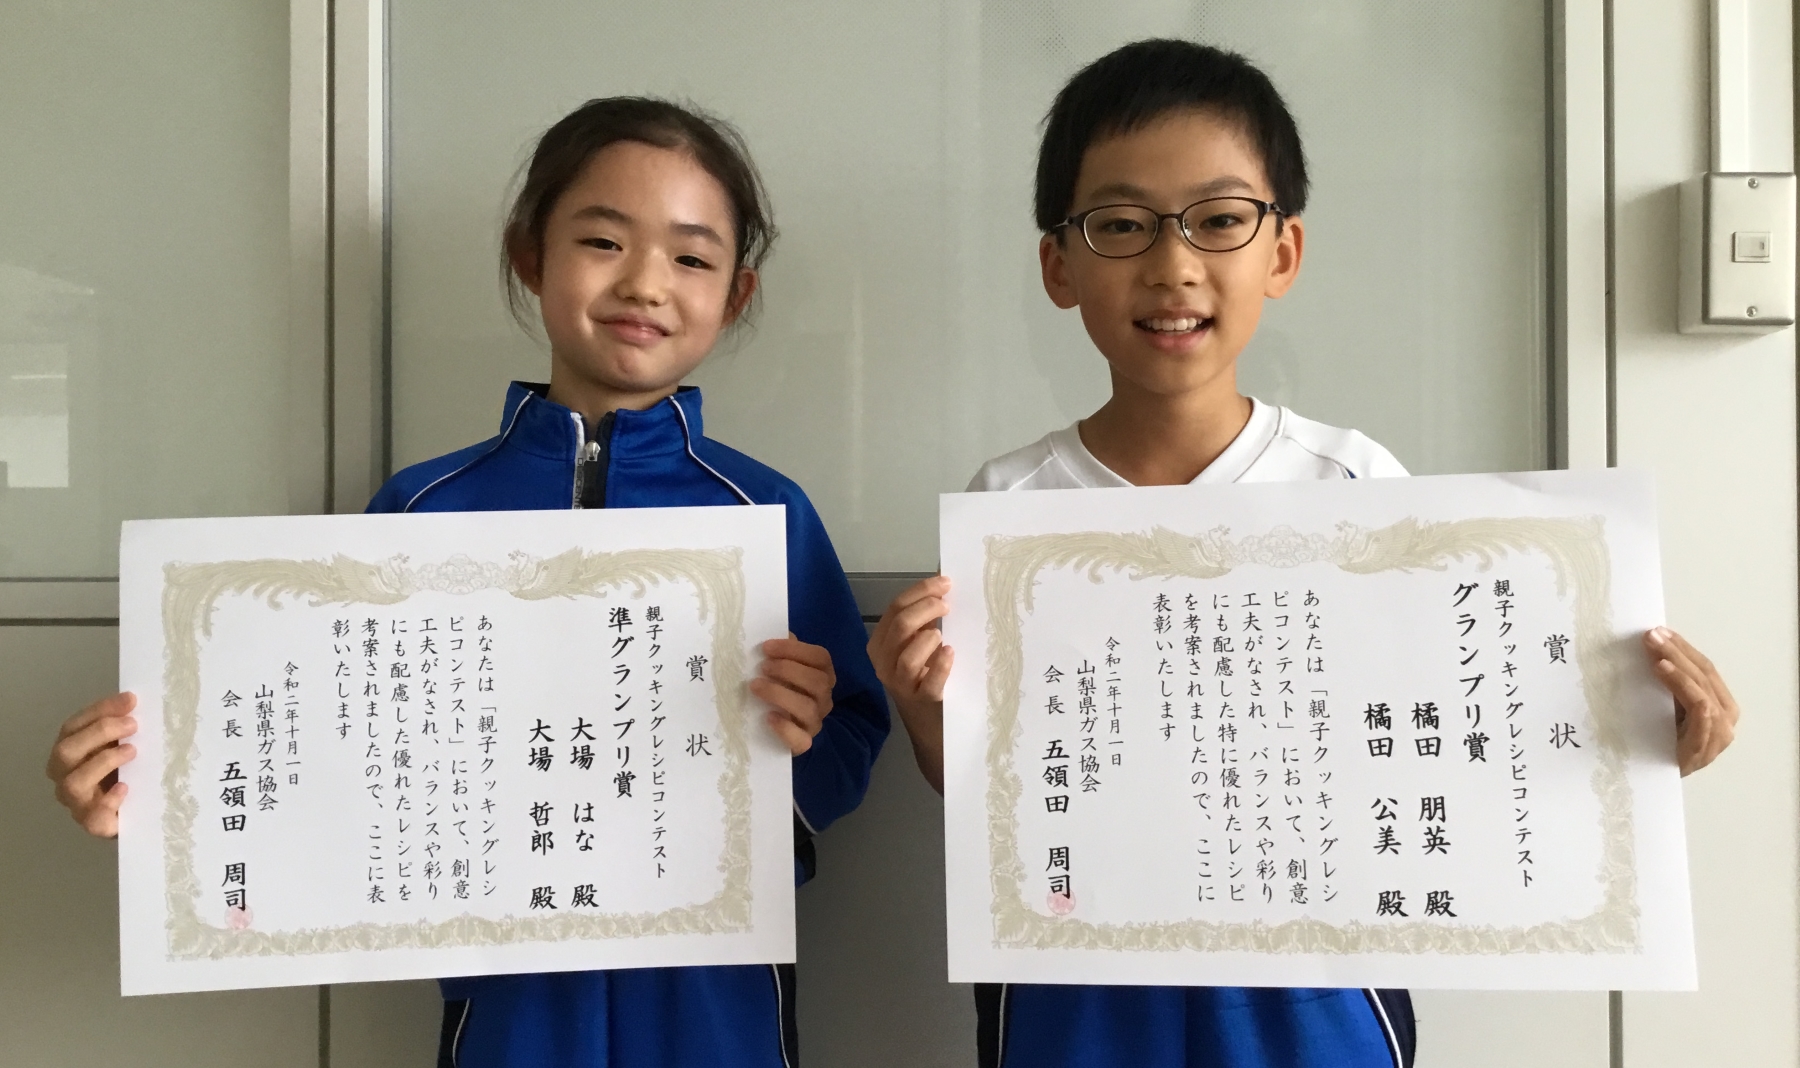 賞状
親子クッキングレシピコンテスト
準グランプリ賞
大場 はな 殿
大場 哲郎 殿
あなたは「親子クッキングレシ
ピコンテスト」において、創意
工夫がなされ、バランスや彩り
にも配慮した優れたレシピを
考案されましたので、ここに表
彰いたします
令和二年十月一日
山梨県ガス協会
会長 五領田 周司
賞状
親子クッキングレシピコンテスト
グランプリ賞
橘田 朋英 殿
橘田 公美 殿
あなたは「親子クッキングレシ
ピコンテスト」において、創意
工夫がなされ、バランスや彩り
にも配慮した特に優れたレシピ
を考案されましたので、ここに
表彰いたします
令和二年十月一日
山梨県ガス協会
会長 五領田 周司